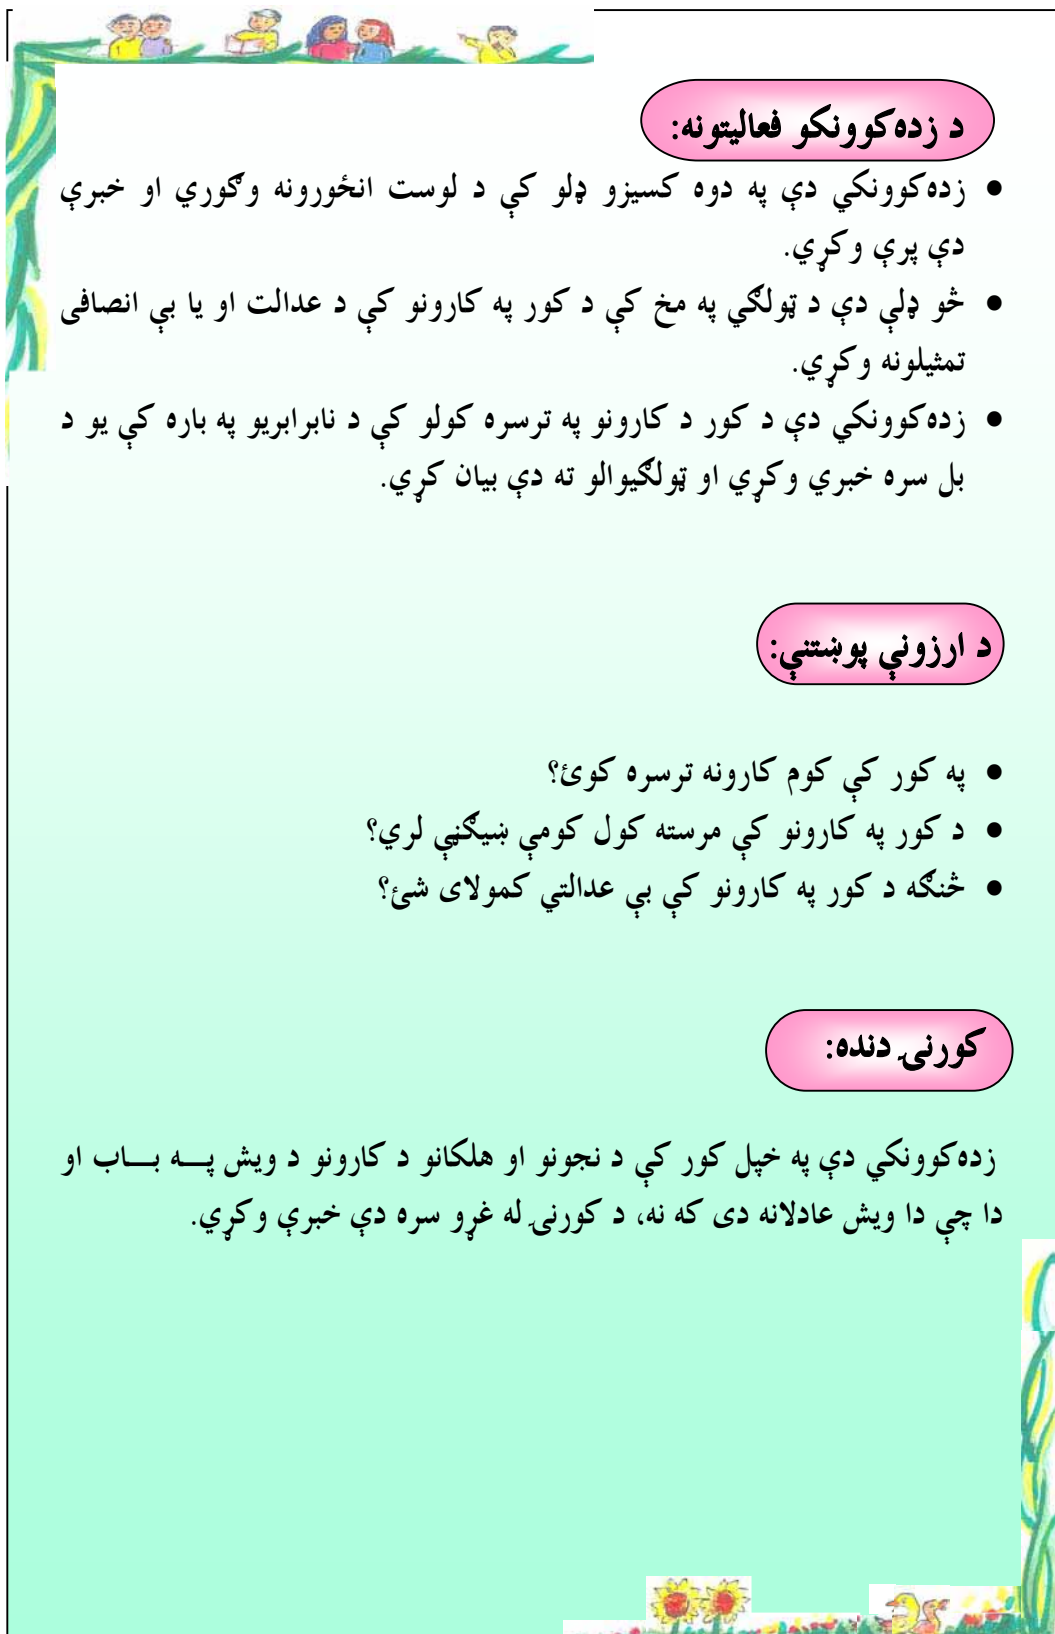 د زده‌کوونکو فعالیتونه:
● زده‌کوونکي دې په دوه کسیزو ډلو کې د لوست انځورونه وګوري او خبرې
دې پرې وکړي.
● څو ډلې دې د ټولګي په مخ کې د کور په کارونو کې د عدالت او یا بې انصافی
تمثیلونه وکړي.
● زده‌کوونکي دې د کور د کارونو په ترسره کولو کې د نابرابریو په باره کې یو د
بل سره خبري وکړي او ټولګیوالو ته دې بیان کړي.
د ارزونې پوښتنې:
● په کور کې کوم کارونه ترسره کوئ؟
● د کور په کارونو کې مرسته کول کومې ښیګڼې لري؟
● څنګه د کور په کارونو کې بې عدالتي کمولای شئ؟
کورنۍ دنده:
زده‌کوونکي دې په خپل کور کې د نجونو او هلکانو د کارونو د ویش پـــه بـــاب او
دا چې دا ویش عادلانه دی که نه، د کورنۍ له غړو سره دې خبرې وکړي.